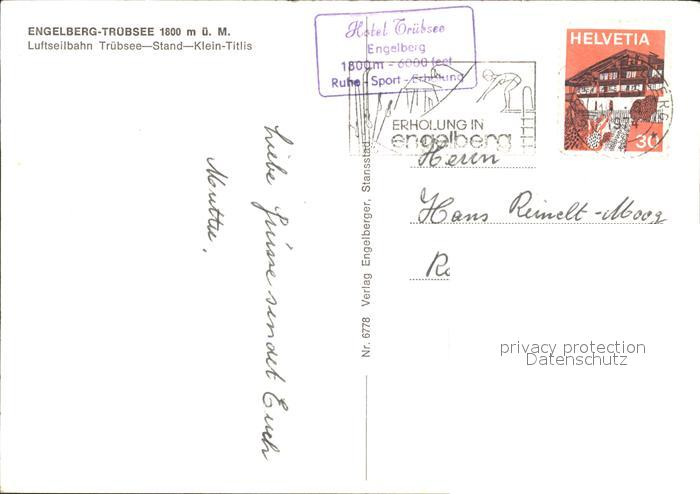 ENGELBERG-TRÜBSEE 1800 m ü. M.
Luftseilbahn Trübsee—Stand—Klein-Titlis
Hotel Trübsee
Engelberg
1800m - 6000 feet
Ruhe - Sport - Erholung
ERHOLUNG IN
engelberg
HELVETIA
30
Liebe Grüsse sendet Euch
Mutter.
Nr. 6778 Verlag Engelberger, Stansstad
Herrn
Hans Reinelt-Moog
privacy protection
Datenschutz